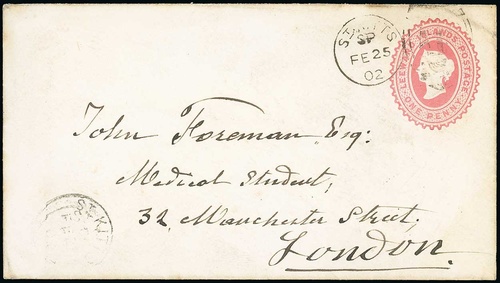 ST KITTS
SP
FE 25
02
LEEWARD ISLANDS POSTAGE
ONE PENNY
John Foreman Esq:
Medical Student,
32, Manchester Street,
London.
ST. KI